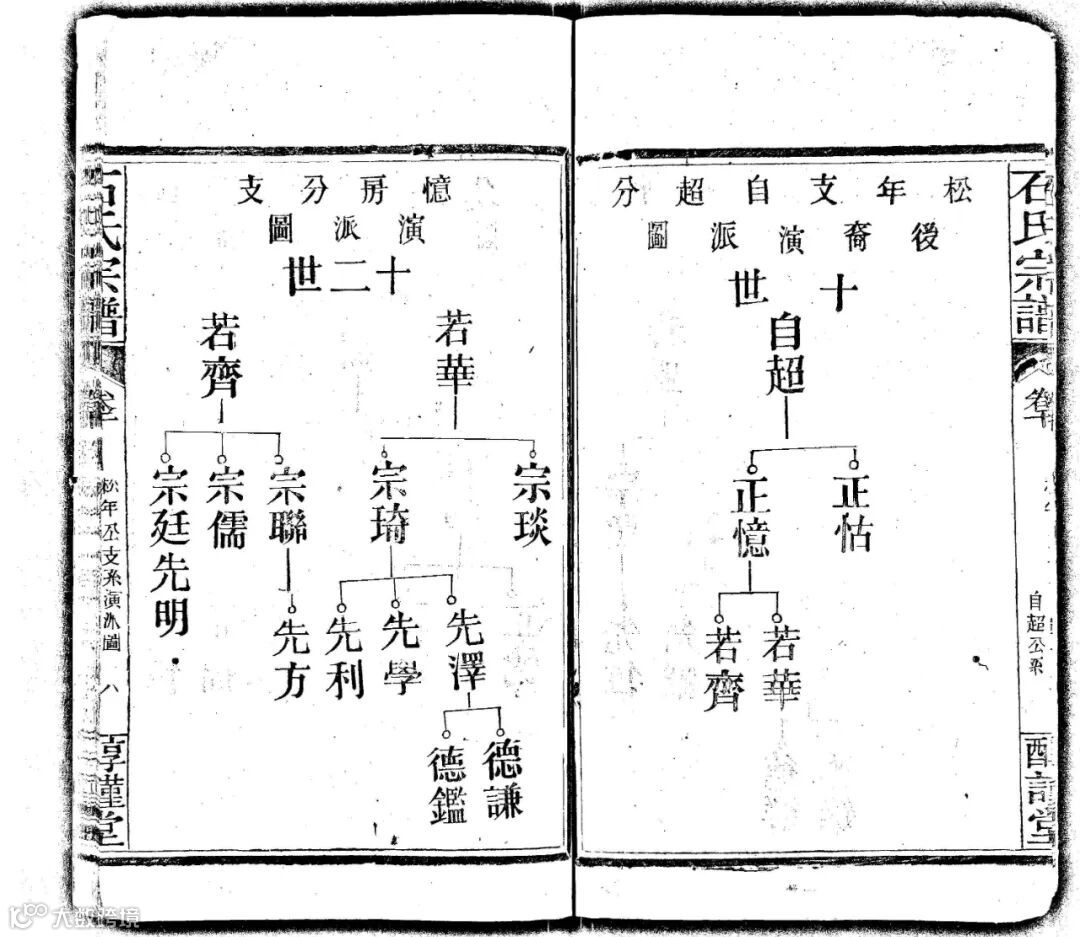 石氏宗譜
卷
自超公系
堂
松年支自超分
後裔演派圖
十世
自超
正怙
正憶
若華
若齊
憶房分支
演派圖
十二世
若華
宗琰
宗琦
先澤
先學
先利
德謙
德鑑
若齊
宗聯
宗儒
宗廷先明
先方
石氏宗譜
卷
松年公支系演派圖
八
堂
大数跨境